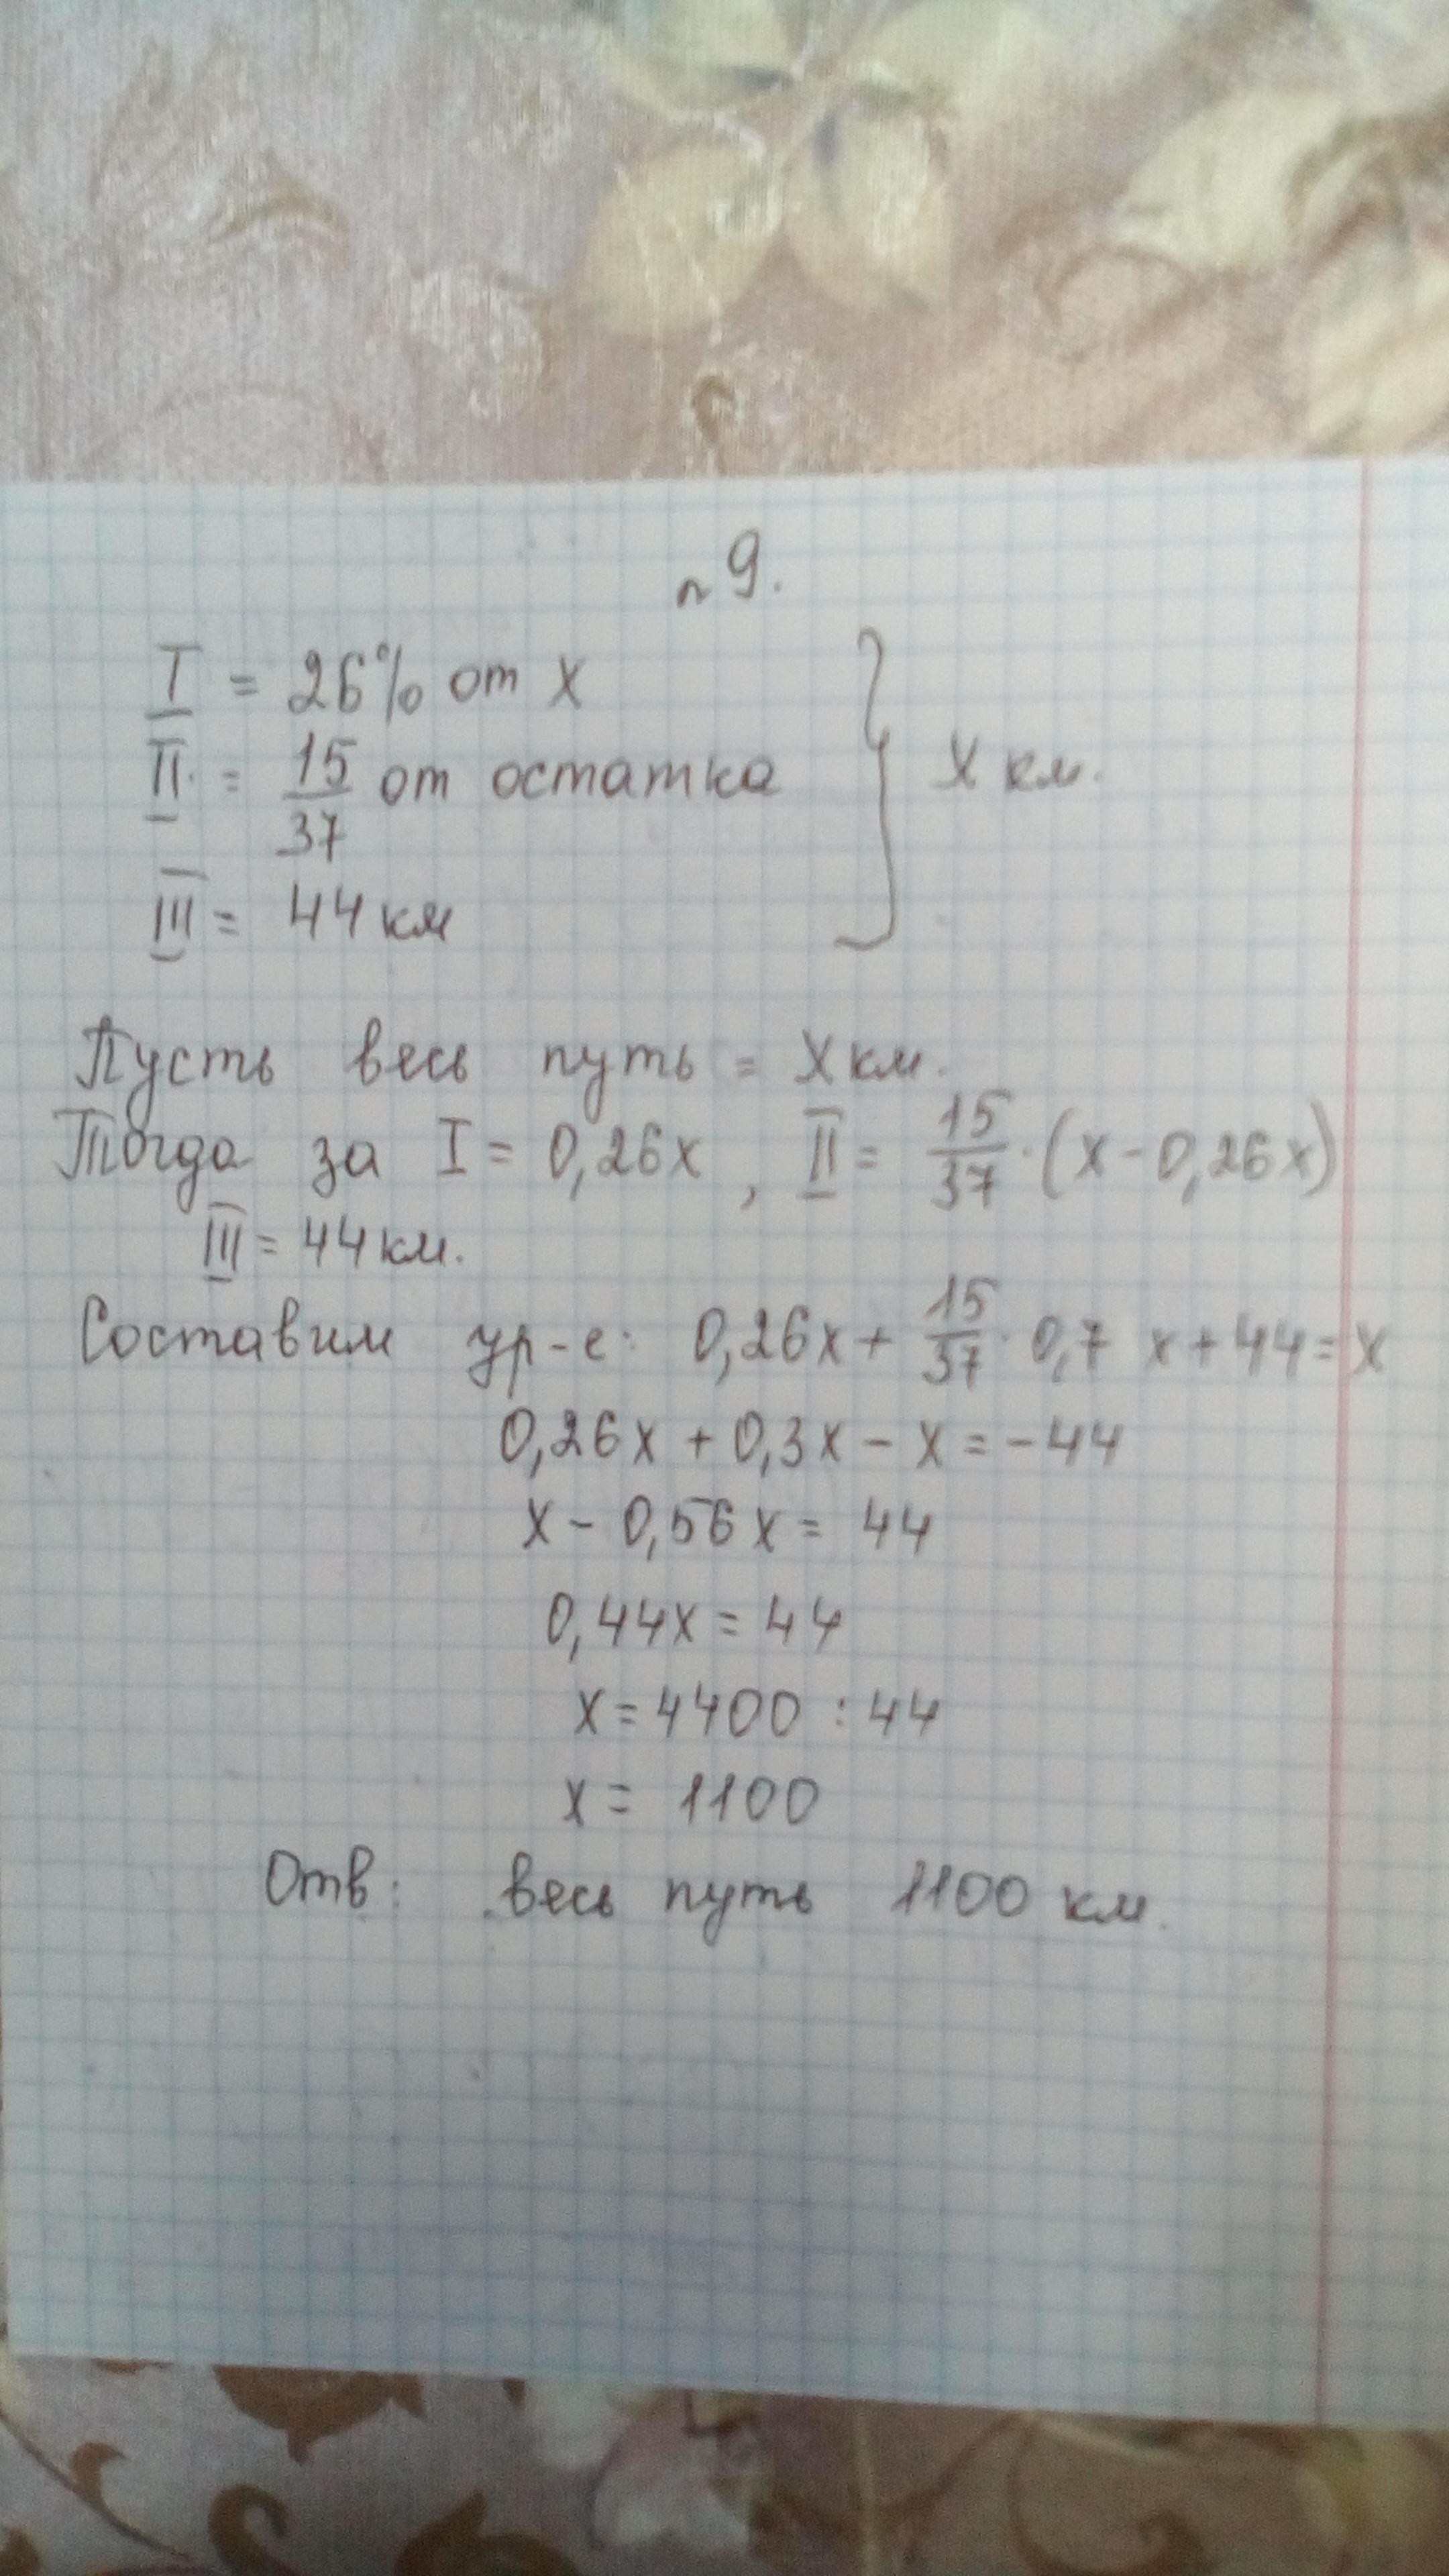 № 9.
I = 26% от x
II = 15/37 от остатка } x км.
III = 44 км
Пусть весь путь = x км.
Тогда за I = 0,26x, II = 15/37 · (x - 0,26x)
III = 44 км.
Составим ур-е: 0,26x + 15/37 · 0,7 x + 44 = x
0,26x + 0,3x - x = -44
x - 0,56x = 44
0,44x = 44
x = 4400 : 44
x = 1100
Отв: весь путь 1100 км.